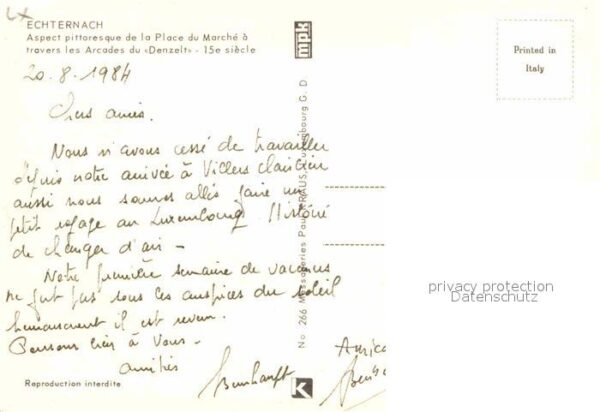 LX
ECHTERNACH
Aspect pittoresque de la Place du Marché à
travers les Arcades du «Denzelt» - 15e siècle
mpk
Printed in
Italy
20.8.1984
Chers amis.
Nous n'avons cessé de travailler
depuis notre arrivée à Villers
aussi nous sommes allés faire un
petit voyage au Luxembourg. Histoire
de changer d'air -
Notre première semaine de vacances
ne fut pas sous les auspices du soleil
heureusement il est revenu.
Pensons bien à vous -
amitiés
No 266 Messageries Paul KRAUS, Luxembourg G. D
privacy protection
Datenschutz
Reproduction interdite
K